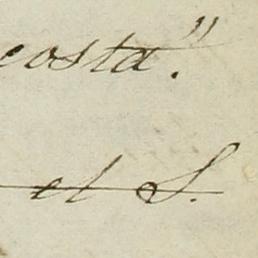 costa."
el S.